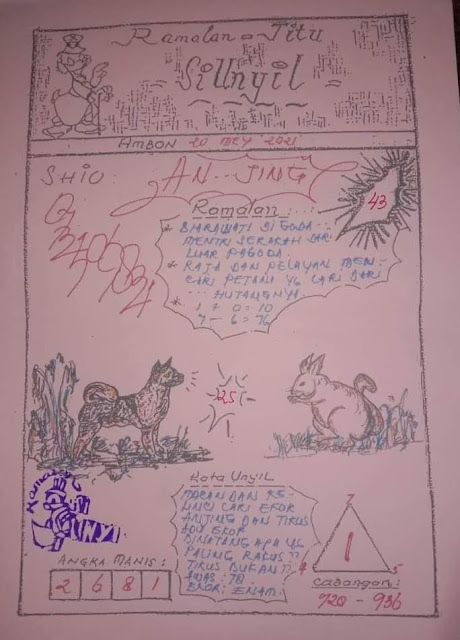 Ramalan = Jitu
Si Unyil
AMBON 20 MEY 2021
SHIO:
AN... JING
43
Ramalan:
* BIARAWATI DI GODA
MENTRI SERAKAH DARI
LUAR PAGODA.
* RAJA DAN PELAYAN MEN-
CARI PETANI YG LARI DARI
HUTANGNYA.
* 1 + 0 = 10
7 - 6 = 76
25
Kata Unyil
MACAN DAN KE-
LINCI CARI EKOR
ANJING DAN TIKUS
ADU EKOR
BINATANG APA YG
PALING RAKUS ??
TIKUS BUKAN!!
AWAS: 78
EKOR: ENAM
ANGKA MANIS:
2 6 8 1
7
1
5
CABANGAN:
920 - 936